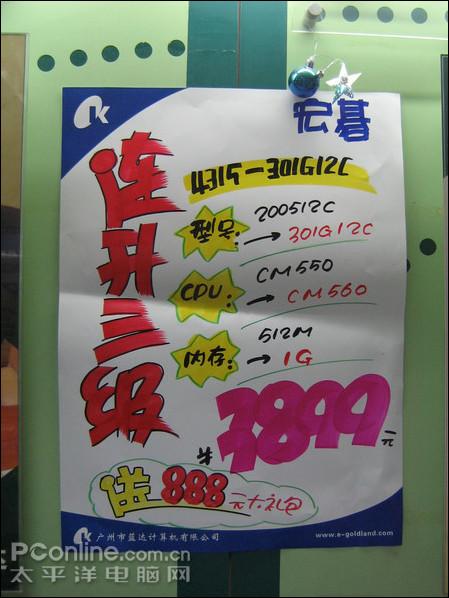 k
宏碁
连升三级
4315-301G12C
型号: 200512C
→301G12C
CPU: CM550
→CM560
内存: 512M
→1G
¥3899元
送888元大礼包
k 广州市蓝达计算机有限公司
www.e-goldland.com
PConline.com.cn
太平洋电脑网